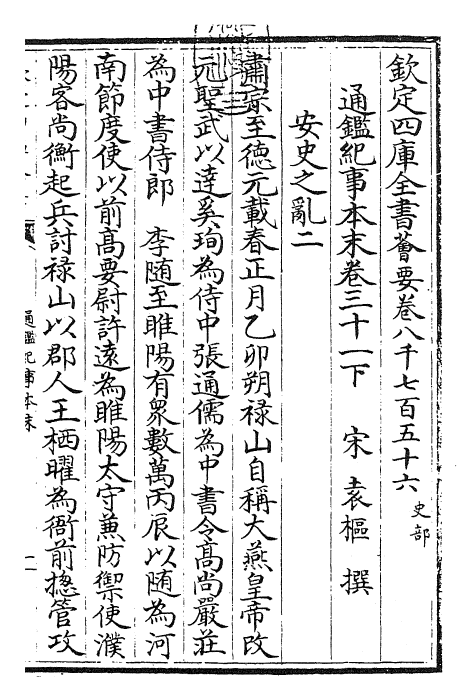 欽定四庫全書薈要卷八千七百五十六 史部
通鑑紀事本末卷三十一下 宋 袁樞 撰
安史之亂二
肅宗至德元載春正月乙卯朔祿山自稱大燕皇帝改
元聖武以達奚珣為侍中張通儒為中書令高尚嚴莊
為中書侍郎 李隨至睢陽有衆數萬丙辰以隨為河
南節度使以前高要尉許遠為睢陽太守兼防禦使濮
陽客尚衡起兵討祿山以郡人王栖曜為衙前揔管攻
通鑑紀事本末